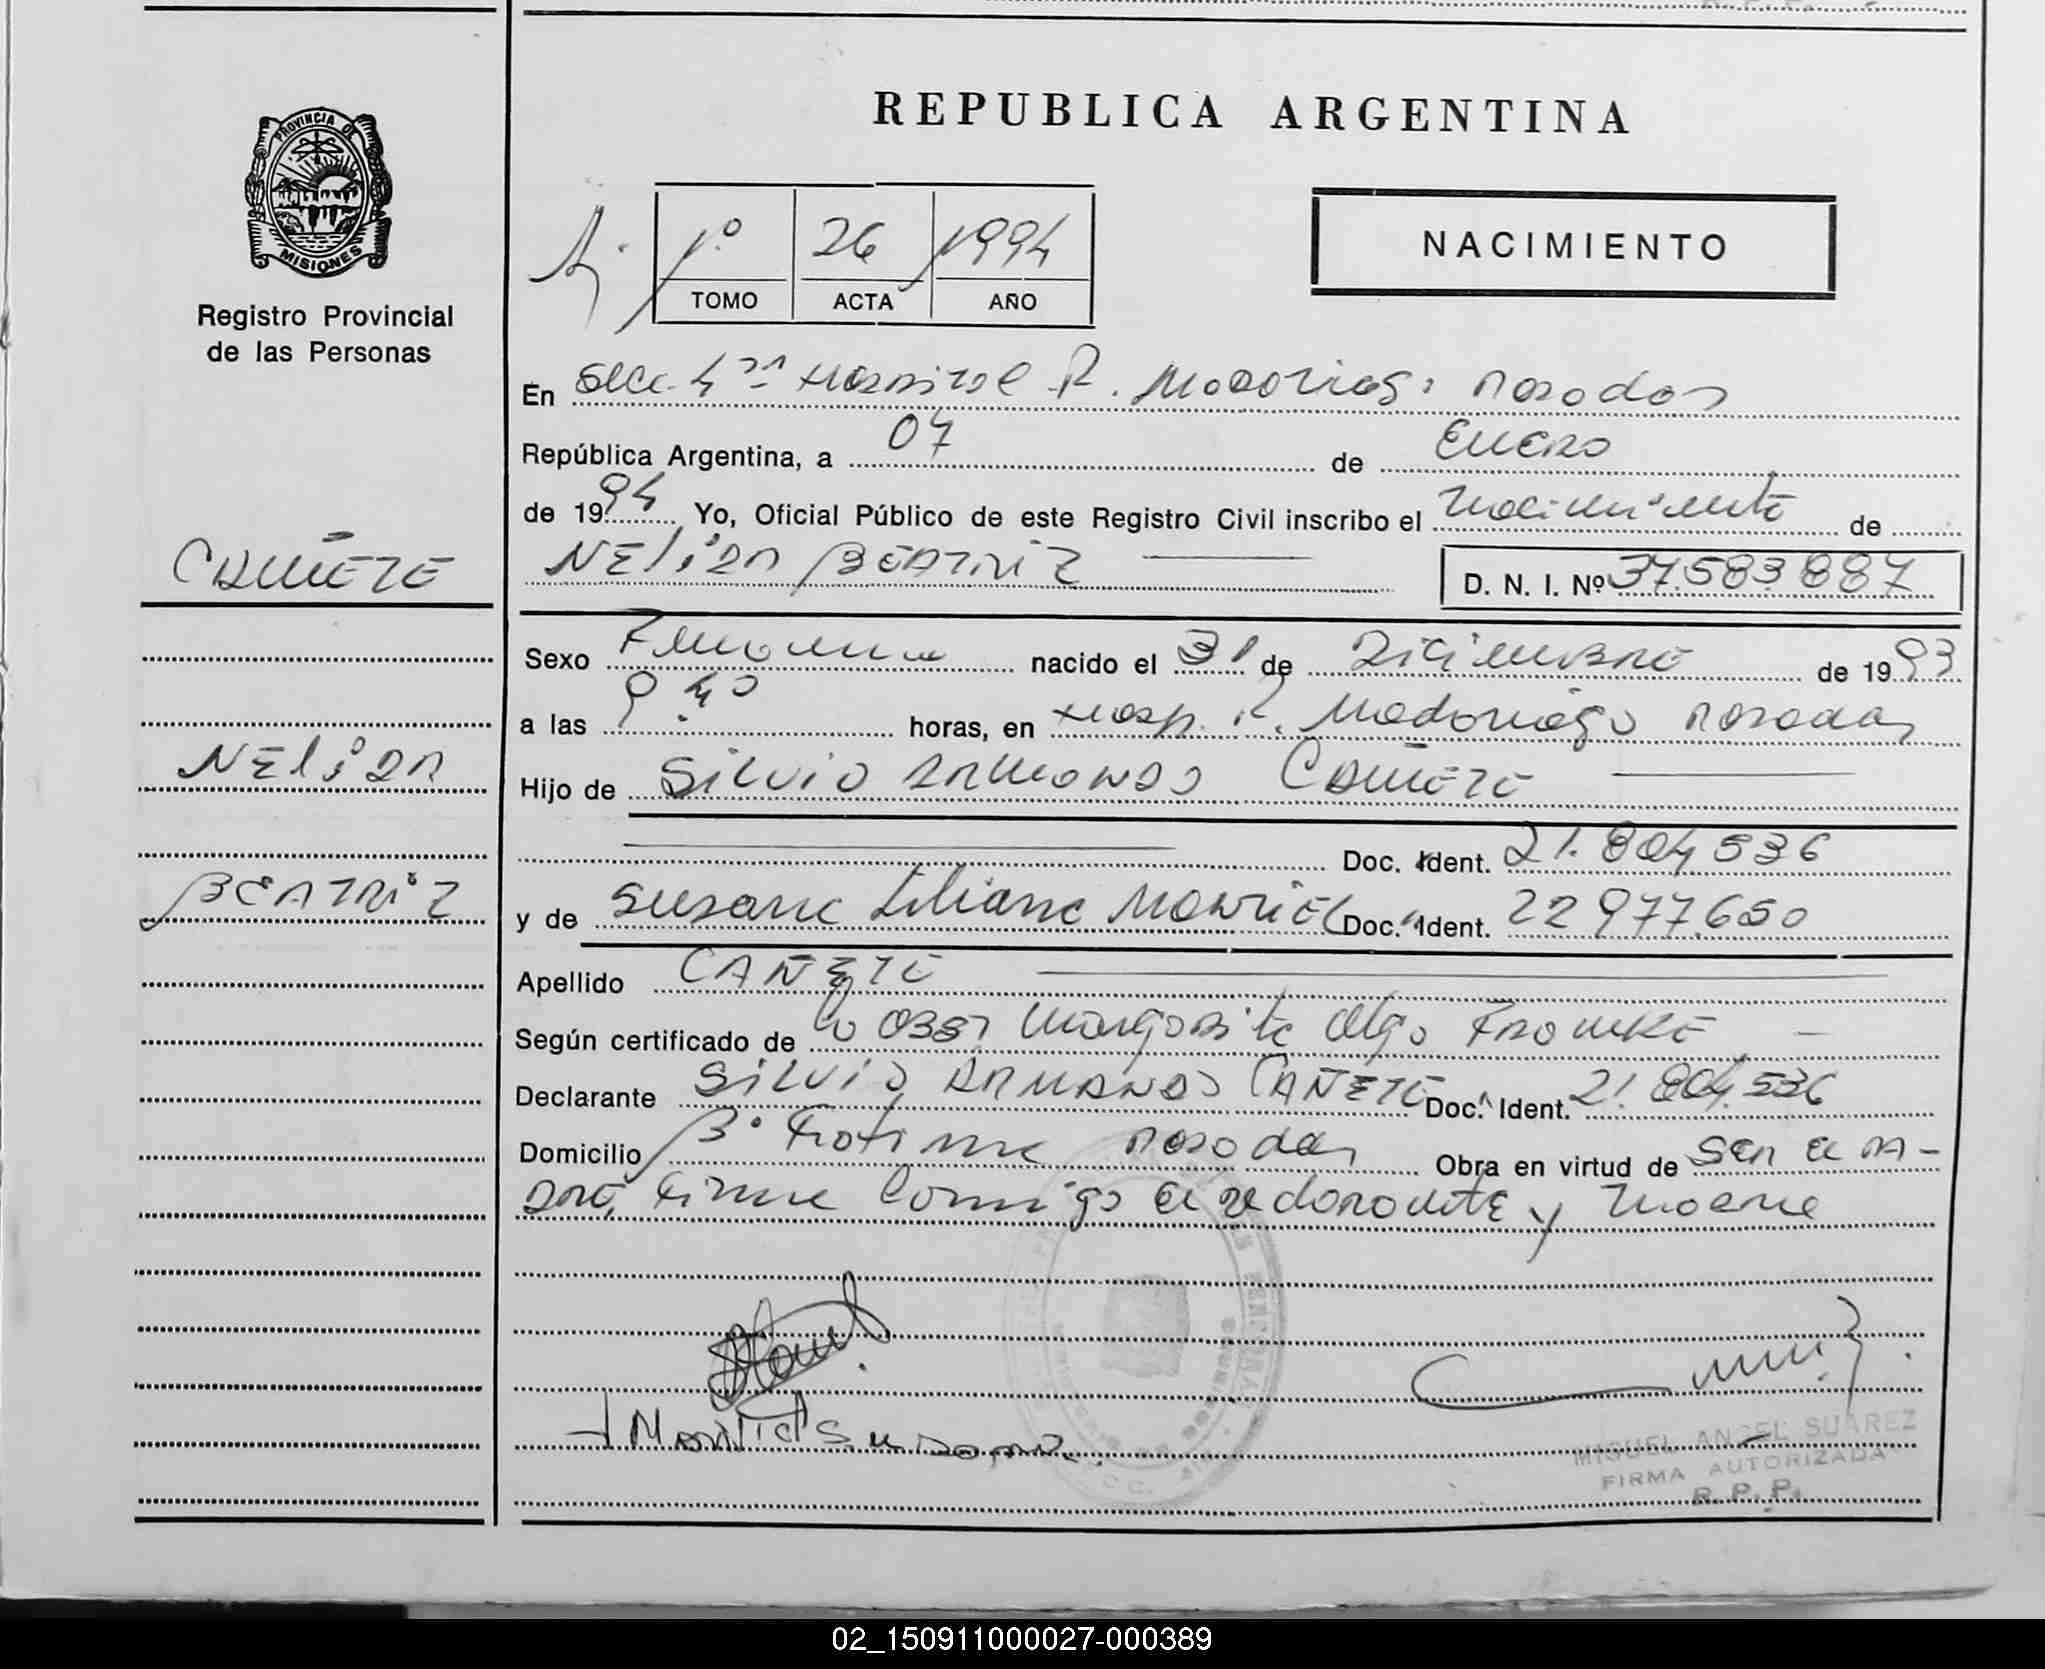 REPUBLICA ARGENTINA
PROVINCIA DE
MISIONES
Registro Provincial
de las Personas
1º 26 1994
TOMO ACTA AÑO
NACIMIENTO
En Secc. 4ta Hospital R. Madariaga, Posadas
República Argentina, a 07 de Enero
de 1994 Yo, Oficial Público de este Registro Civil inscribo el nacimiento de
CAÑETE
NELIDA BEATRIZ D. N. I. Nº 37.583.887
Sexo Femenino nacido el 31 de Diciembre de 1993
a las 9.40 horas, en Hosp. R. Madariaga Posadas
NELIDA
Hijo de Silvio Armando CAÑETE
Doc. Ident. 21.804.536
BEATRIZ
y de Susana Liliana MONTIEL Doc. Ident. 22.977.650
Apellido CAÑETE
Según certificado de Margarita Olga
Declarante Silvio Armando CAÑETE Doc. Ident. 21.804.536
Domicilio Bº Posadas Obra en virtud de ser el pa-
dre, firma conmigo el declarante y madre
Montiel Susana
MIGUEL ANGEL SUAREZ
FIRMA AUTORIZADA
R. P. P.
02_150911000027-000389